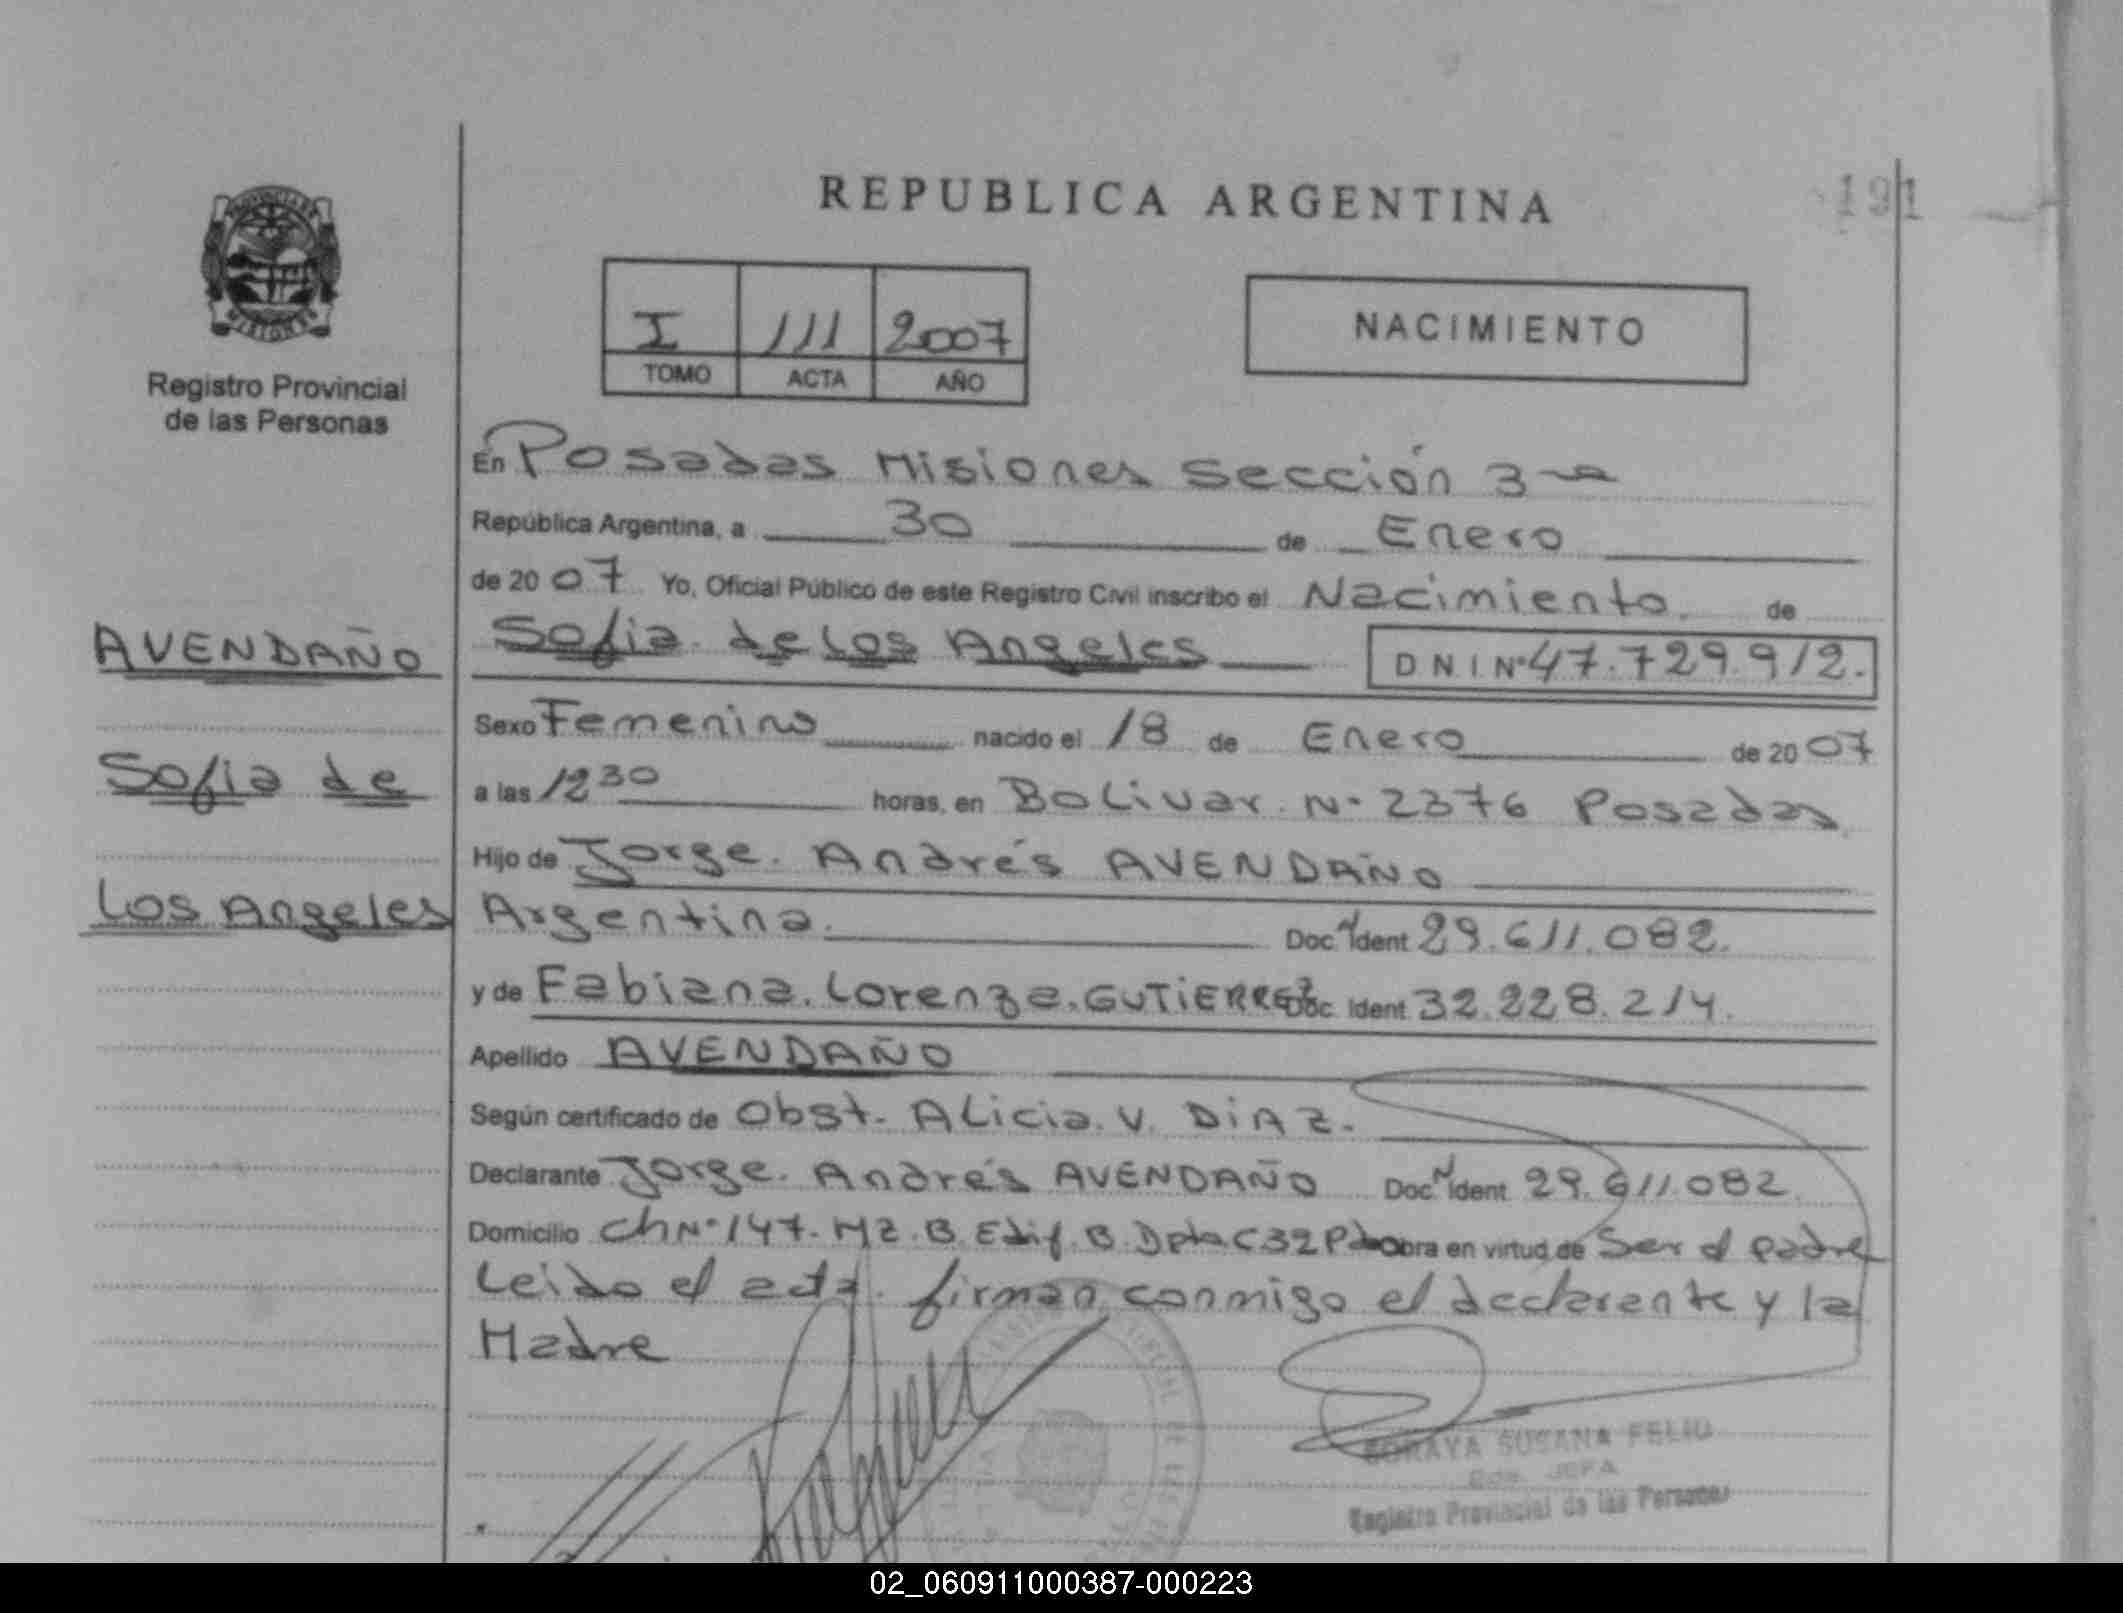 REPUBLICA ARGENTINA
191
PROVINCIA DE
MISIONES
Registro Provincial
de las Personas
I 111 2007
TOMO ACTA AÑO
NACIMIENTO
En Posadas Misiones Sección 3
República Argentina, a 30 de Enero
de 20 07 Yo, Oficial Público de este Registro Civil inscribo el Nacimiento de
AVENDAÑO
Sofia de los Angeles D N I. Nº 47.729.912.
Sexo Femenino nacido el 18 de Enero de 20 07
Sofia de
a las 12 30 horas, en Bolivar Nº 2376 Posadas
Hijo de Jorge Andrés AVENDAÑO
Los Angeles
Argentina. Doc. Ident 29.611.082.
y de Fabiana Lorenza GUTIERREZ Doc. Ident 32.228.214.
Apellido AVENDAÑO
Según certificado de Obst. Alicia V. DiAZ.
Declarante Jorge Andrés AVENDAÑO Doc. Ident 29.611.082
Domicilio Ch Nº 147. Mz. B Edif. B Dpto C32 obra en virtud de Ser el padre
Leido el acta firman conmigo el declarante y la
Madre
SORAYA SUSANA FELIU
JEFA
Registro Provincial de las Personas
02_060911000387-000223